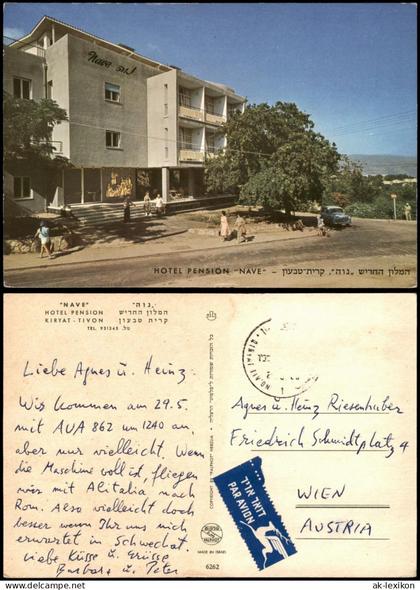 Nave נוה
HOTEL PENSION "NAVE" – המלון החדיש „נוה”, קרית-טבעון
"NAVE"
HOTEL PENSION
KIRYAT - TIVON
TEL. 931345
„נוה”
המלון החדיש
קרית טבעון
טל. 931345
Liebe Agnes u. Heinz.
Wir kommen am 29.5.
mit AUA 862 um 1240 an.
aber nur vielleicht. Wenn
die Maschine voll ist, fliegen
wir mit Alitalia nach
Rom. Also vielleicht doch
besser wenn Ihr uns nich
erwartet in Schwechat.
Liebe Küsse u. Grüsse
Barbara u. Peter
COPYRIGHT BY "PALPHOT" HERZLIA
כל הזכויות שמורות ל"פלפוט" הרצליה
PALPHOT
MADE IN ISRAEL
6262
Agnes u. Heinz Riesenhuber
Friedrich Schmidtplatz 4
WIEN
AUSTRIA
דואר אויר
PAR AVION
www.ak-location.com